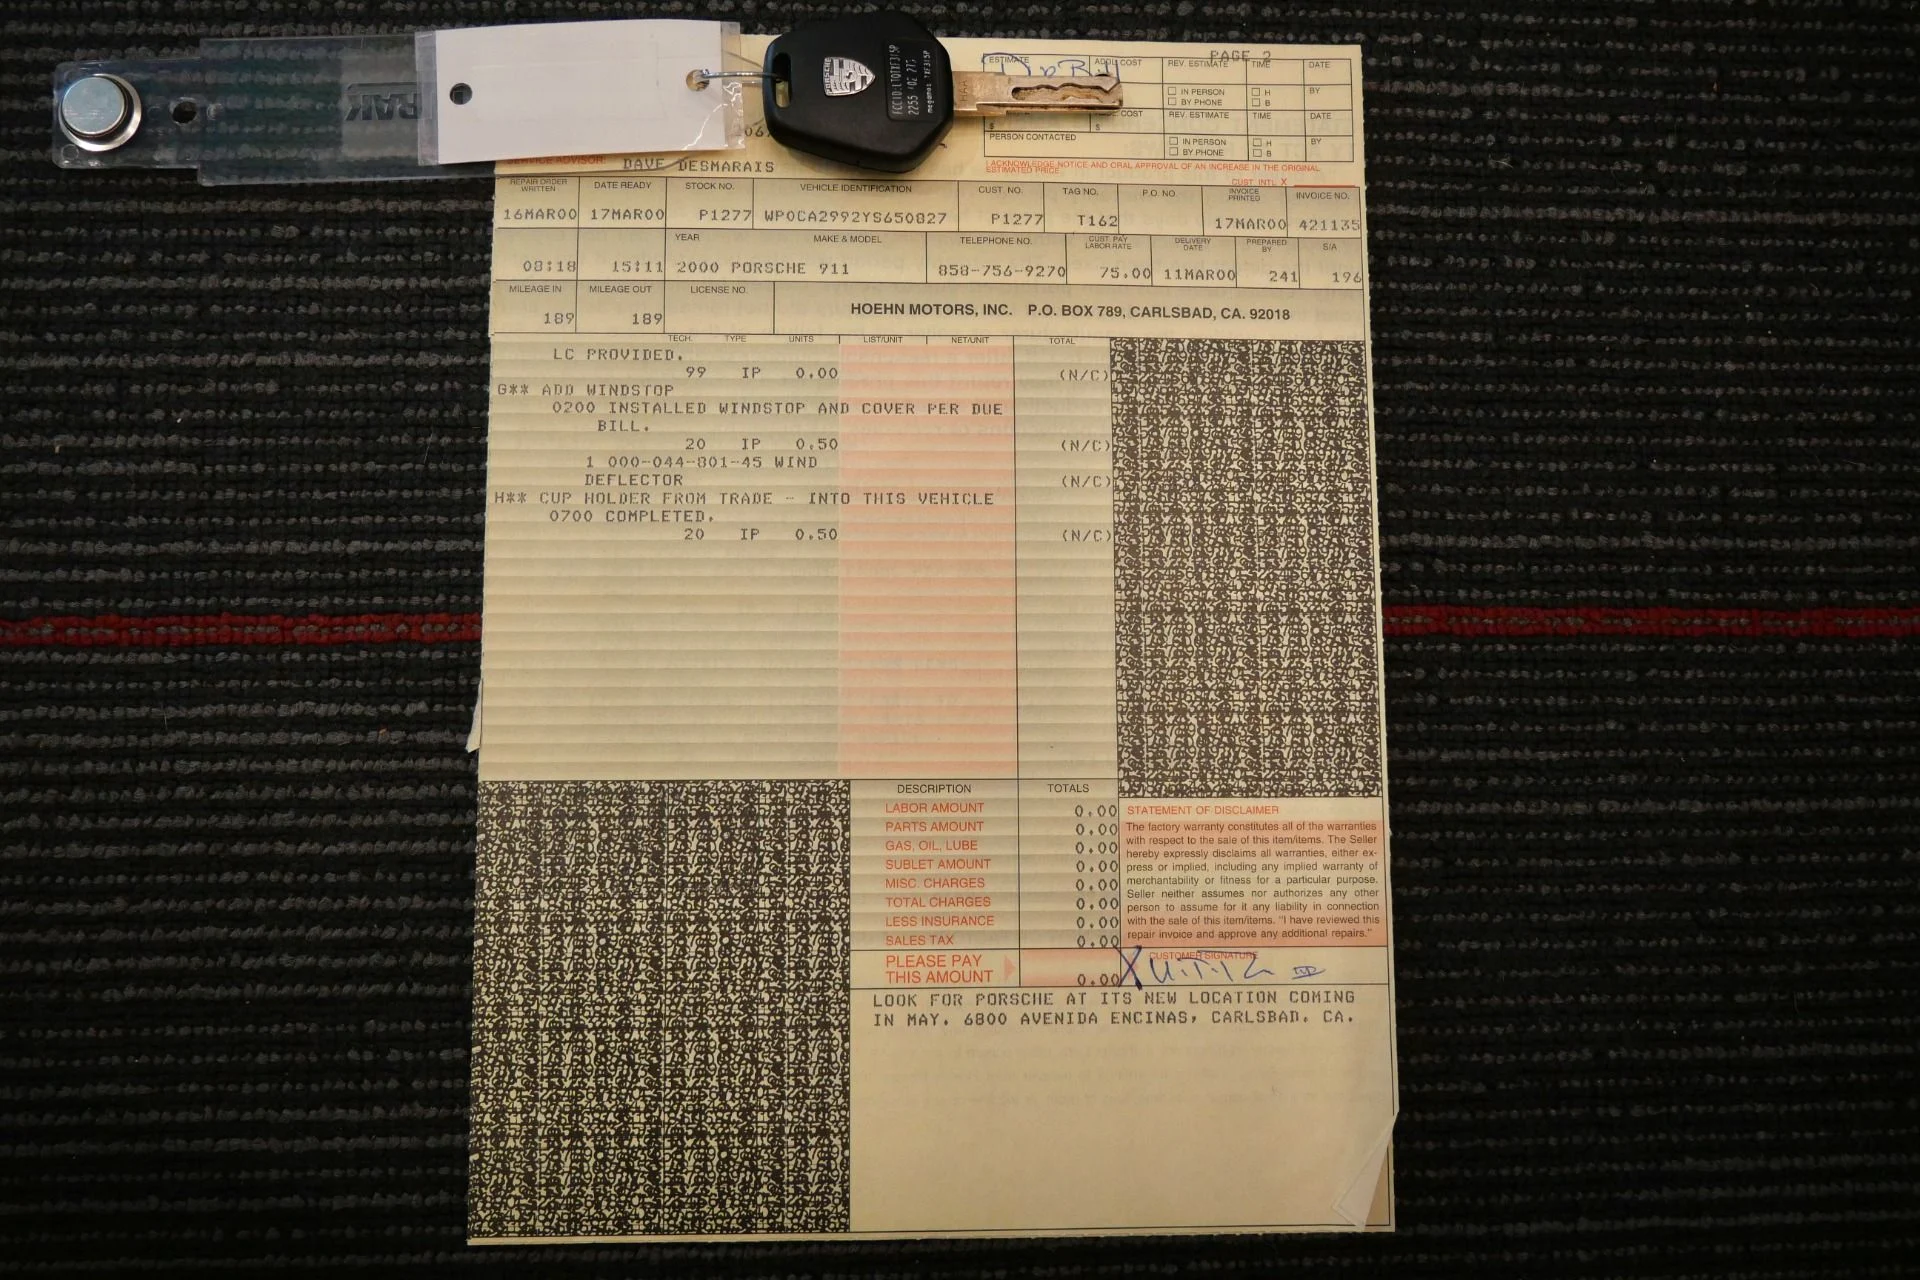 PAGE 2
ESTIMATE
ADD'L COST
REV. ESTIMATE
TIME
DATE
IN PERSON
BY PHONE
H
B
BY
COST
REV. ESTIMATE
TIME
DATE
$
$
PERSON CONTACTED
IN PERSON
BY PHONE
H
B
BY
PORSCHE
SERVICE ADVISOR: DAVE DESMARAIS
I ACKNOWLEDGE NOTICE AND ORAL APPROVAL OF AN INCREASE IN THE ORIGINAL
ESTIMATED PRICE.
CUST. INTL. X
REPAIR ORDER WRITTEN DATE READY STOCK NO. VEHICLE IDENTIFICATION CUST. NO. TAG NO. P.O. NO. INVOICE PRINTED INVOICE NO.
16MAR00 17MAR00 P1277 WP0CA2992YS650827 P1277 T162 17MAR00 421135
YEAR MAKE & MODEL TELEPHONE NO. CUST. PAY LABOR RATE DELIVERY DATE PREPARED BY S/A
08:18 15:11 2000 PORSCHE 911 858-756-9270 75.00 11MAR00 241 196
MILEAGE IN MILEAGE OUT LICENSE NO.
189 189
HOEHN MOTORS, INC. P.O. BOX 789, CARLSBAD, CA. 92018
TECH. TYPE UNITS LIST/UNIT NET/UNIT TOTAL
LC PROVIDED.
99 IP 0.00 (N/C)
G** ADD WINDSTOP
0200 INSTALLED WINDSTOP AND COVER PER DUE
BILL.
20 IP 0.50 (N/C)
1 000-044-801-45 WIND
DEFLECTOR (N/C)
H** CUP HOLDER FROM TRADE - INTO THIS VEHICLE
0700 COMPLETED.
20 IP 0.50 (N/C)
DESCRIPTION TOTALS
LABOR AMOUNT 0.00
PARTS AMOUNT 0.00
GAS, OIL, LUBE 0.00
SUBLET AMOUNT 0.00
MISC. CHARGES 0.00
TOTAL CHARGES 0.00
LESS INSURANCE 0.00
SALES TAX 0.00
PLEASE PAY
THIS AMOUNT 0.00
STATEMENT OF DISCLAIMER
The factory warranty constitutes all of the warranties
with respect to the sale of this item/items. The Seller
hereby expressly disclaims all warranties, either ex-
press or implied, including any implied warranty of
merchantability or fitness for a particular purpose.
Seller neither assumes nor authorizes any other
person to assume for it any liability in connection
with the sale of this item/items. "I have reviewed this
repair invoice and approve any additional repairs."
X
CUSTOMER SIGNATURE
LOOK FOR PORSCHE AT ITS NEW LOCATION COMING
IN MAY. 6800 AVENIDA ENCINAS, CARLSBAD. CA.